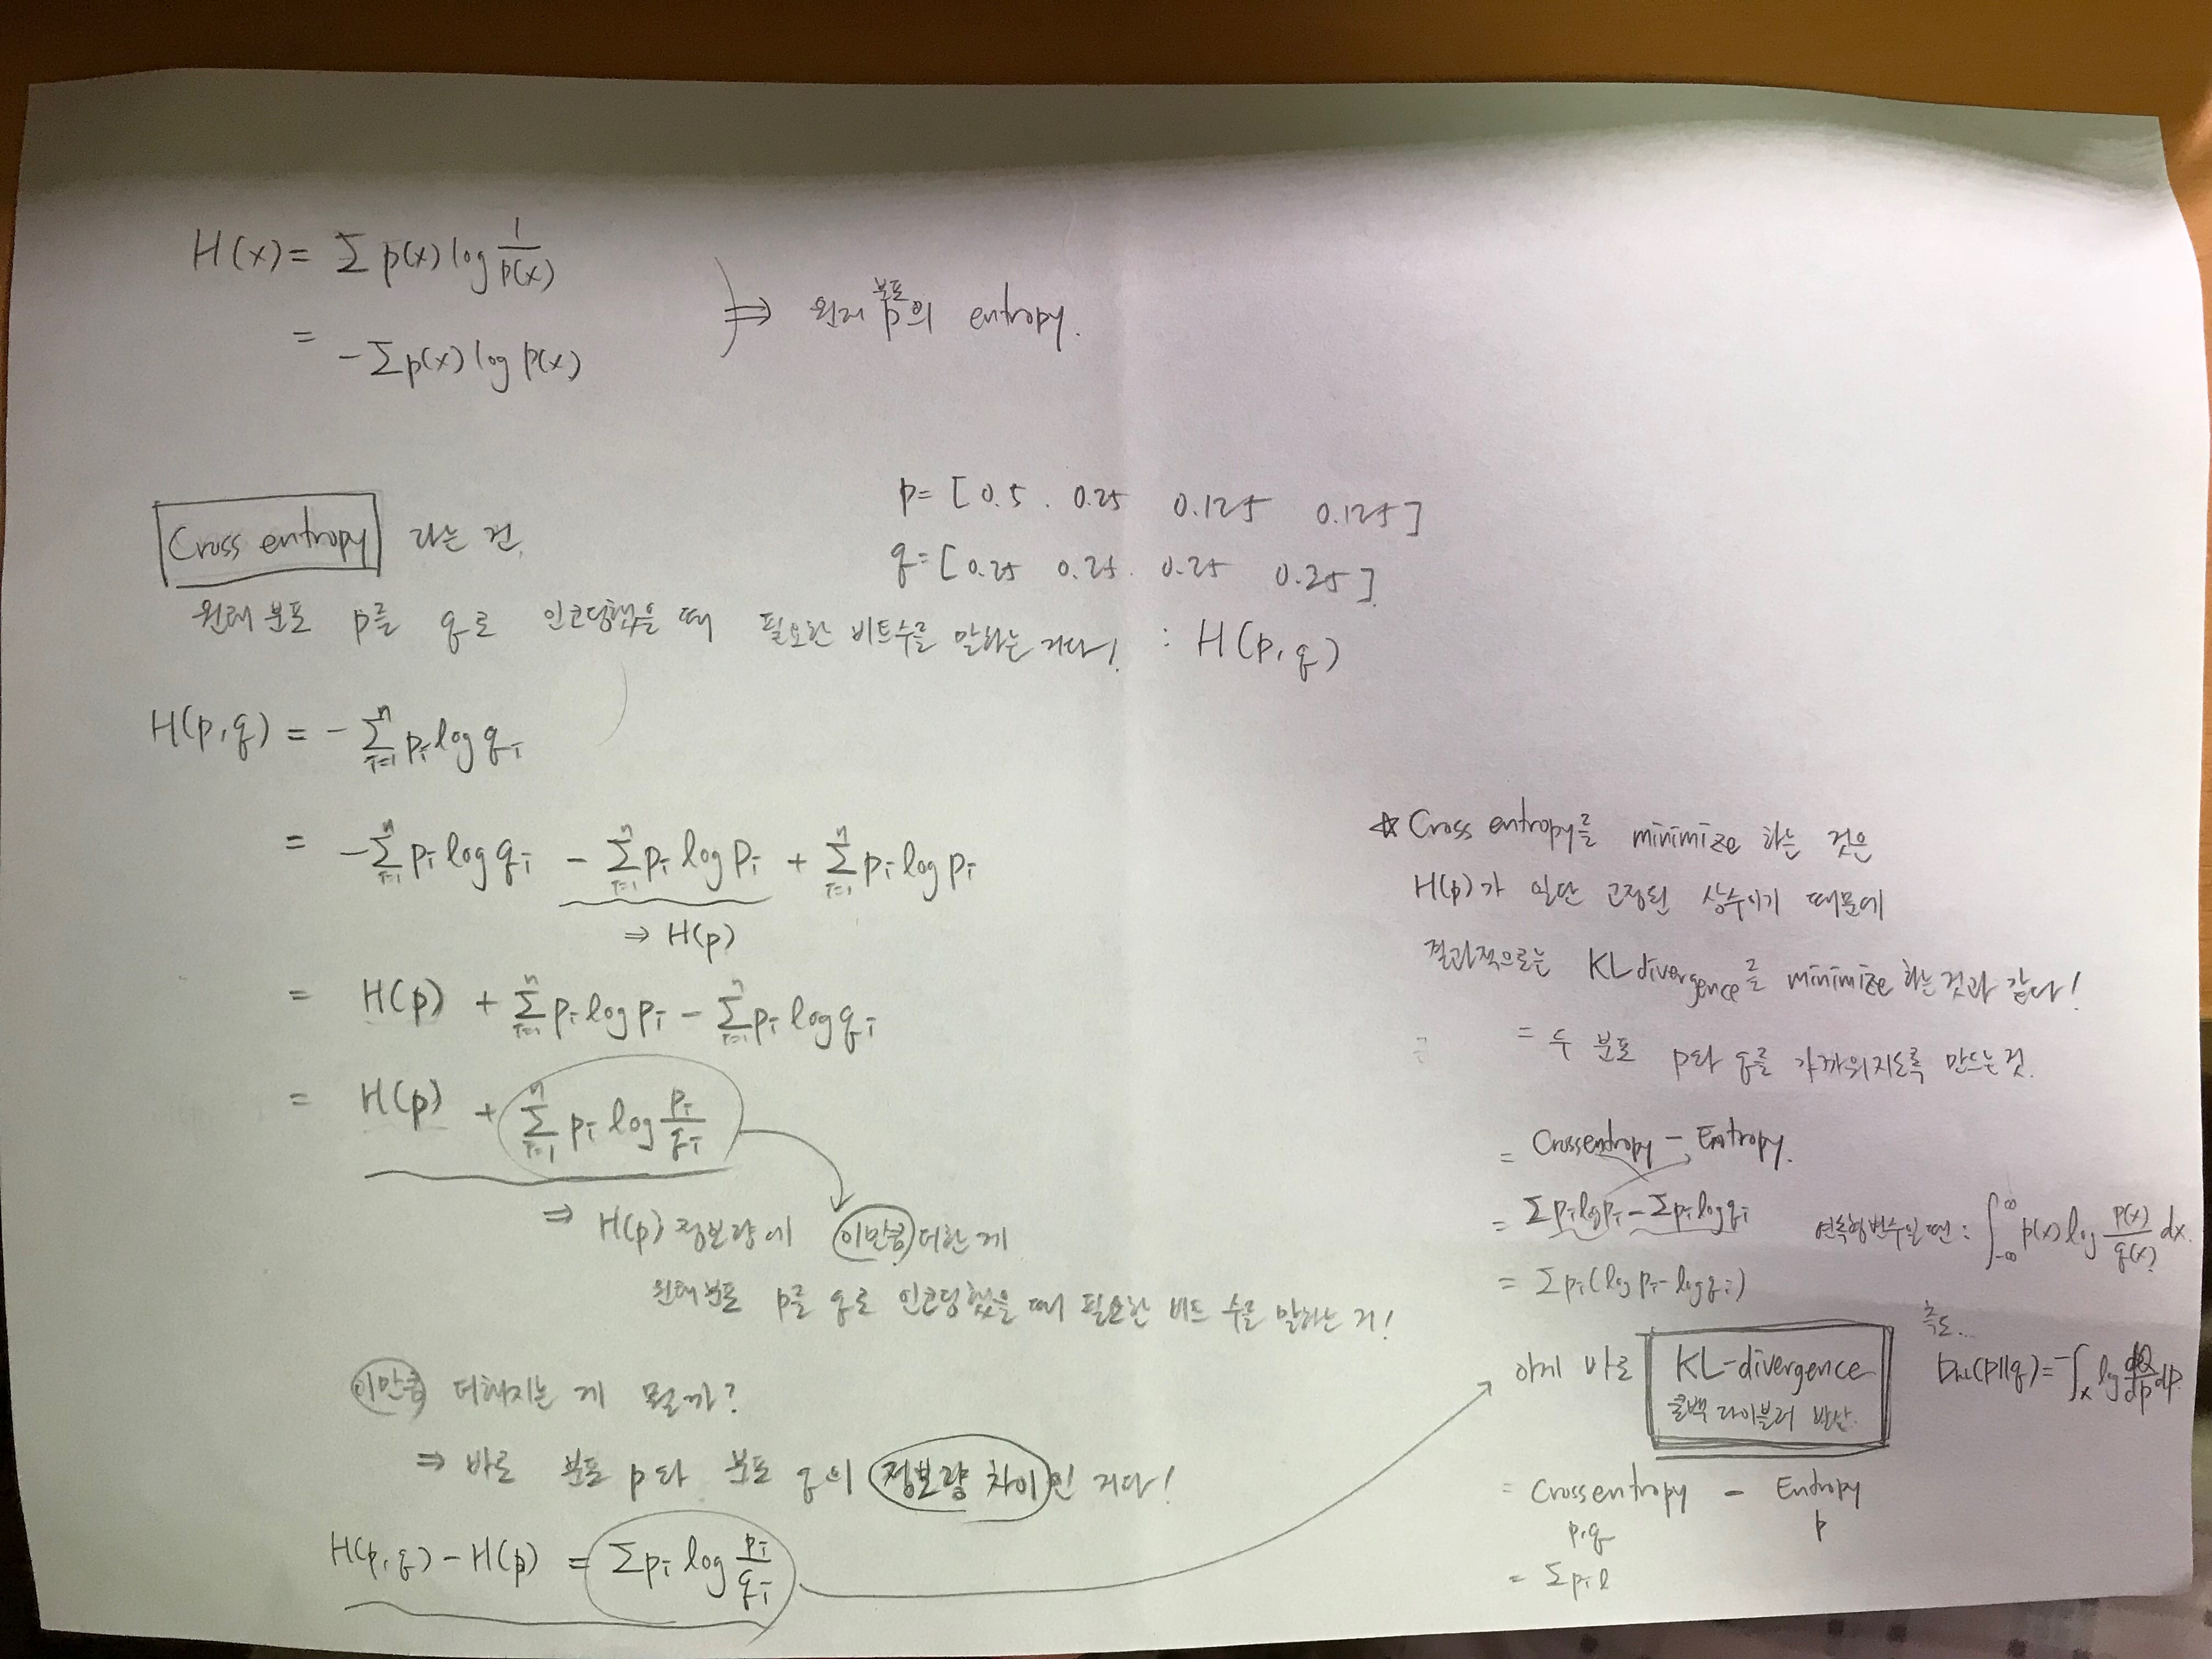 H(x) = Σ p(x) log 1/p(x)
= -Σ p(x) log p(x)
⇒ 원래 분포 p의 entropy.
p = [0.5. 0.25 0.125 0.125]
q = [0.25 0.25. 0.25 0.25].
Cross entropy 라는 건,
원래 분포 p를 q로 인코딩했을 때 필요한 비트수를 말하는 거다! : H(p,q)
H(p,q) = - Σ_{i=1}^{n} p_i log q_i
= -Σ_{i=1}^{n} p_i log q_i - Σ_{i=1}^{n} p_i log p_i + Σ_{i=1}^{n} p_i log p_i
⇒ H(p)
= H(p) + Σ_{i=1}^{n} p_i log p_i - Σ_{i=1}^{n} p_i log q_i
= H(p) + Σ_{i=1}^{n} p_i log p_i/q_i
⇒ H(p) 정보량에 이만큼 더한 게
원래분포 p를 q로 인코딩했을 때 필요한 비트 수를 말하는 거!
이만큼 더해지는 게 뭘까?
⇒ 바로 분포 p와 분포 q의 정보량 차이인 거다!
H(p,q) - H(p) = Σ p_i log p_i/q_i
☆ Cross entropy를 minimize 하는 것은
H(p)가 일단 고정된 상수이기 때문에
결과적으로는 KL divergence를 minimize 하는 것과 같다!
= 두 분포 p와 q를 가까워지도록 만드는 것.
= Crossentropy - Entropy.
= Σ p_i log p_i - Σ p_i log q_i
연속형변수일 땐 : ∫_{-∞}^{∞} p(x) log p(x)/q(x) dx.
= Σ p_i (log p_i - log q_i)
측도...
이게 바로 KL-divergence
쿨백 라이블러 발산.
D_KL(p||q) = -∫_x log dQ/dP dP.
= Crossentropy - Entropy
p,q p
= Σ p_i l